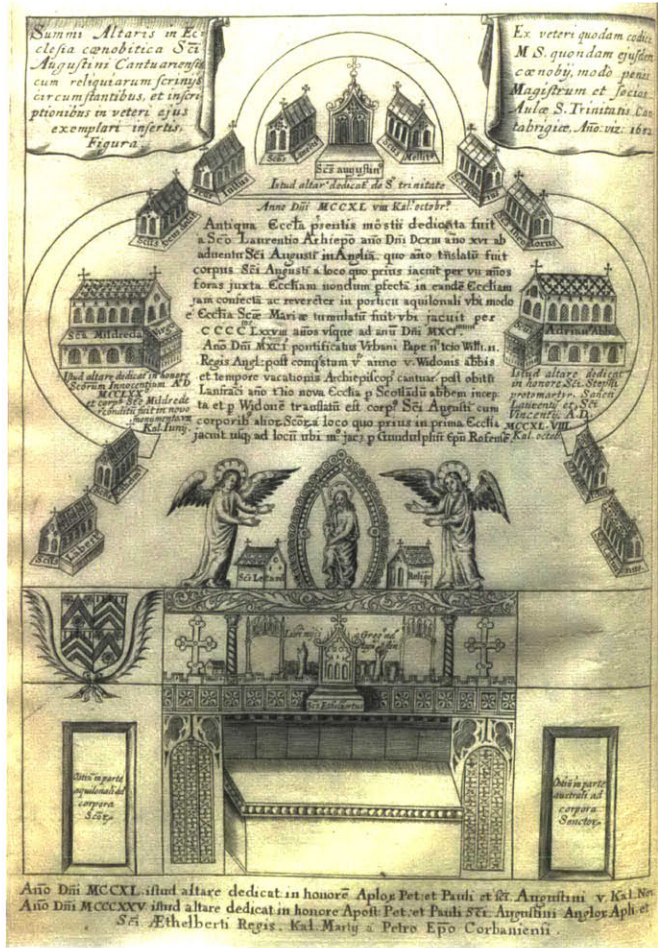 Summi Altaris in Ec:
clesia cœnobitica Sči
Augustini Cantuariensis
cum reliquiarum scrinys
circumstantibus, et inscri
ptionibus in veteri ejus
exemplari insertis.
Figura.
Ex veteri quodam codice
M S. quondam ejusdem
cœnobij, modo penes
Magistrum et Socios
Aulæ S. Trinitatis Can
tabrigiæ. Año: viz: 1652
Sčs augustin⁹
Istud altar' dedicat' de S. trinitate
Anno Dñi MCCXL viii Kal. octobr?
Antiqua Eccła p̄sentis mōstii dedicata fuit
a Sčo Laurentio Arhiepō año Dñi DCXIII año XVI ab
adventu Sči Augusti in Anglia. quo año trāslatū fuit
corpus Sči Augusti a loco quo prius iacuit per vii años
foras juxta Eccliam nondum pfectā in eandē Eccliam
jam confectā ac reverēter in porticu aquilonali vbi modo
ē Ecclia Scæ Mariæ tumulatū fuit: vbi jacuit per
CCCCLXXVIII años vsque ad anū Dñi MXCI
Año Dñi MXCI pontificatus Vrbani Pape ii tcio Willi. ii.
Regis Angl: post conq̄stum v° anno v. Widonis abbis
et tempore vacationis Archiepiscop' cantuar. post obitū
Lanfraci año tīio nova Ecclia p Scotladū abbem incep
ta et p Widonē translatū est corp' Sči Augusti cum
corporib' alior Scōrā loco quo prius in prima Ecclia
jacuit usq; ad locū ubi m° jac; p Gundulphū epū Rofense
Sča Mildreda
Virgo
Istud altare dedicat' in honore
Scorum Innocentium A.D
MCCLXX
et corp' Sče Mildrede
reconditū fuit in novo
Kal. Iunij.
Adrian' Abb
Istud altare dedicat
in honore Sči Stephi
protomartyr. Sancti
Laurentij et Sči
Vincentij A. D.
MCCXL. VIII
Kal. octob
Sčs Letard
Reliqe
Sčs Ethelbertus
Ostiū in parte
aquilonali ad
corpora
Scōr.
Ostiū in parte
australi ad
corpora
Sanctor.
Año Dñi MCCXL. istud altare dedicat in honorē Aplor Pet: et Pauli et sči Augustini v. Kal. Nov.
Año Dñi MCCCXXV. istud altare dedicat in honore Apost: Pet: et Pauli Sči. Augustini Anglor Apli et
Sči Æthelberti Regis. Kal. Martij a Petro Epō Corbaniensi.